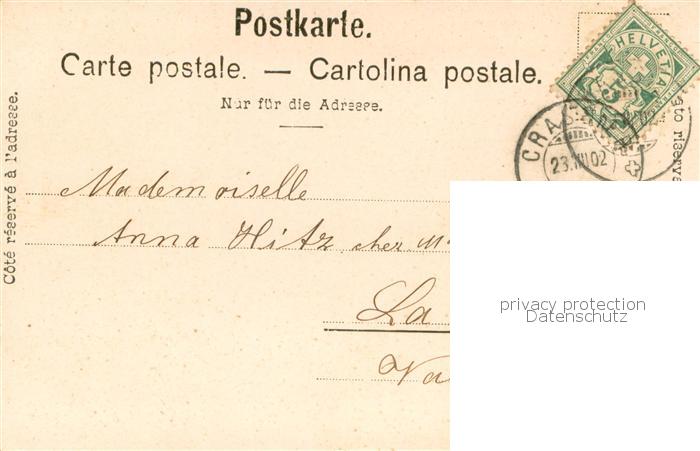 Postkarte.
Carte postale. — Cartolina postale.
Nur für die Adresse.
Côté réservé à l'adresse.
HELVETIA
23.VII.02
Mademoiselle
Anna Hitz chez M
La
Va
privacy protection
Datenschutz